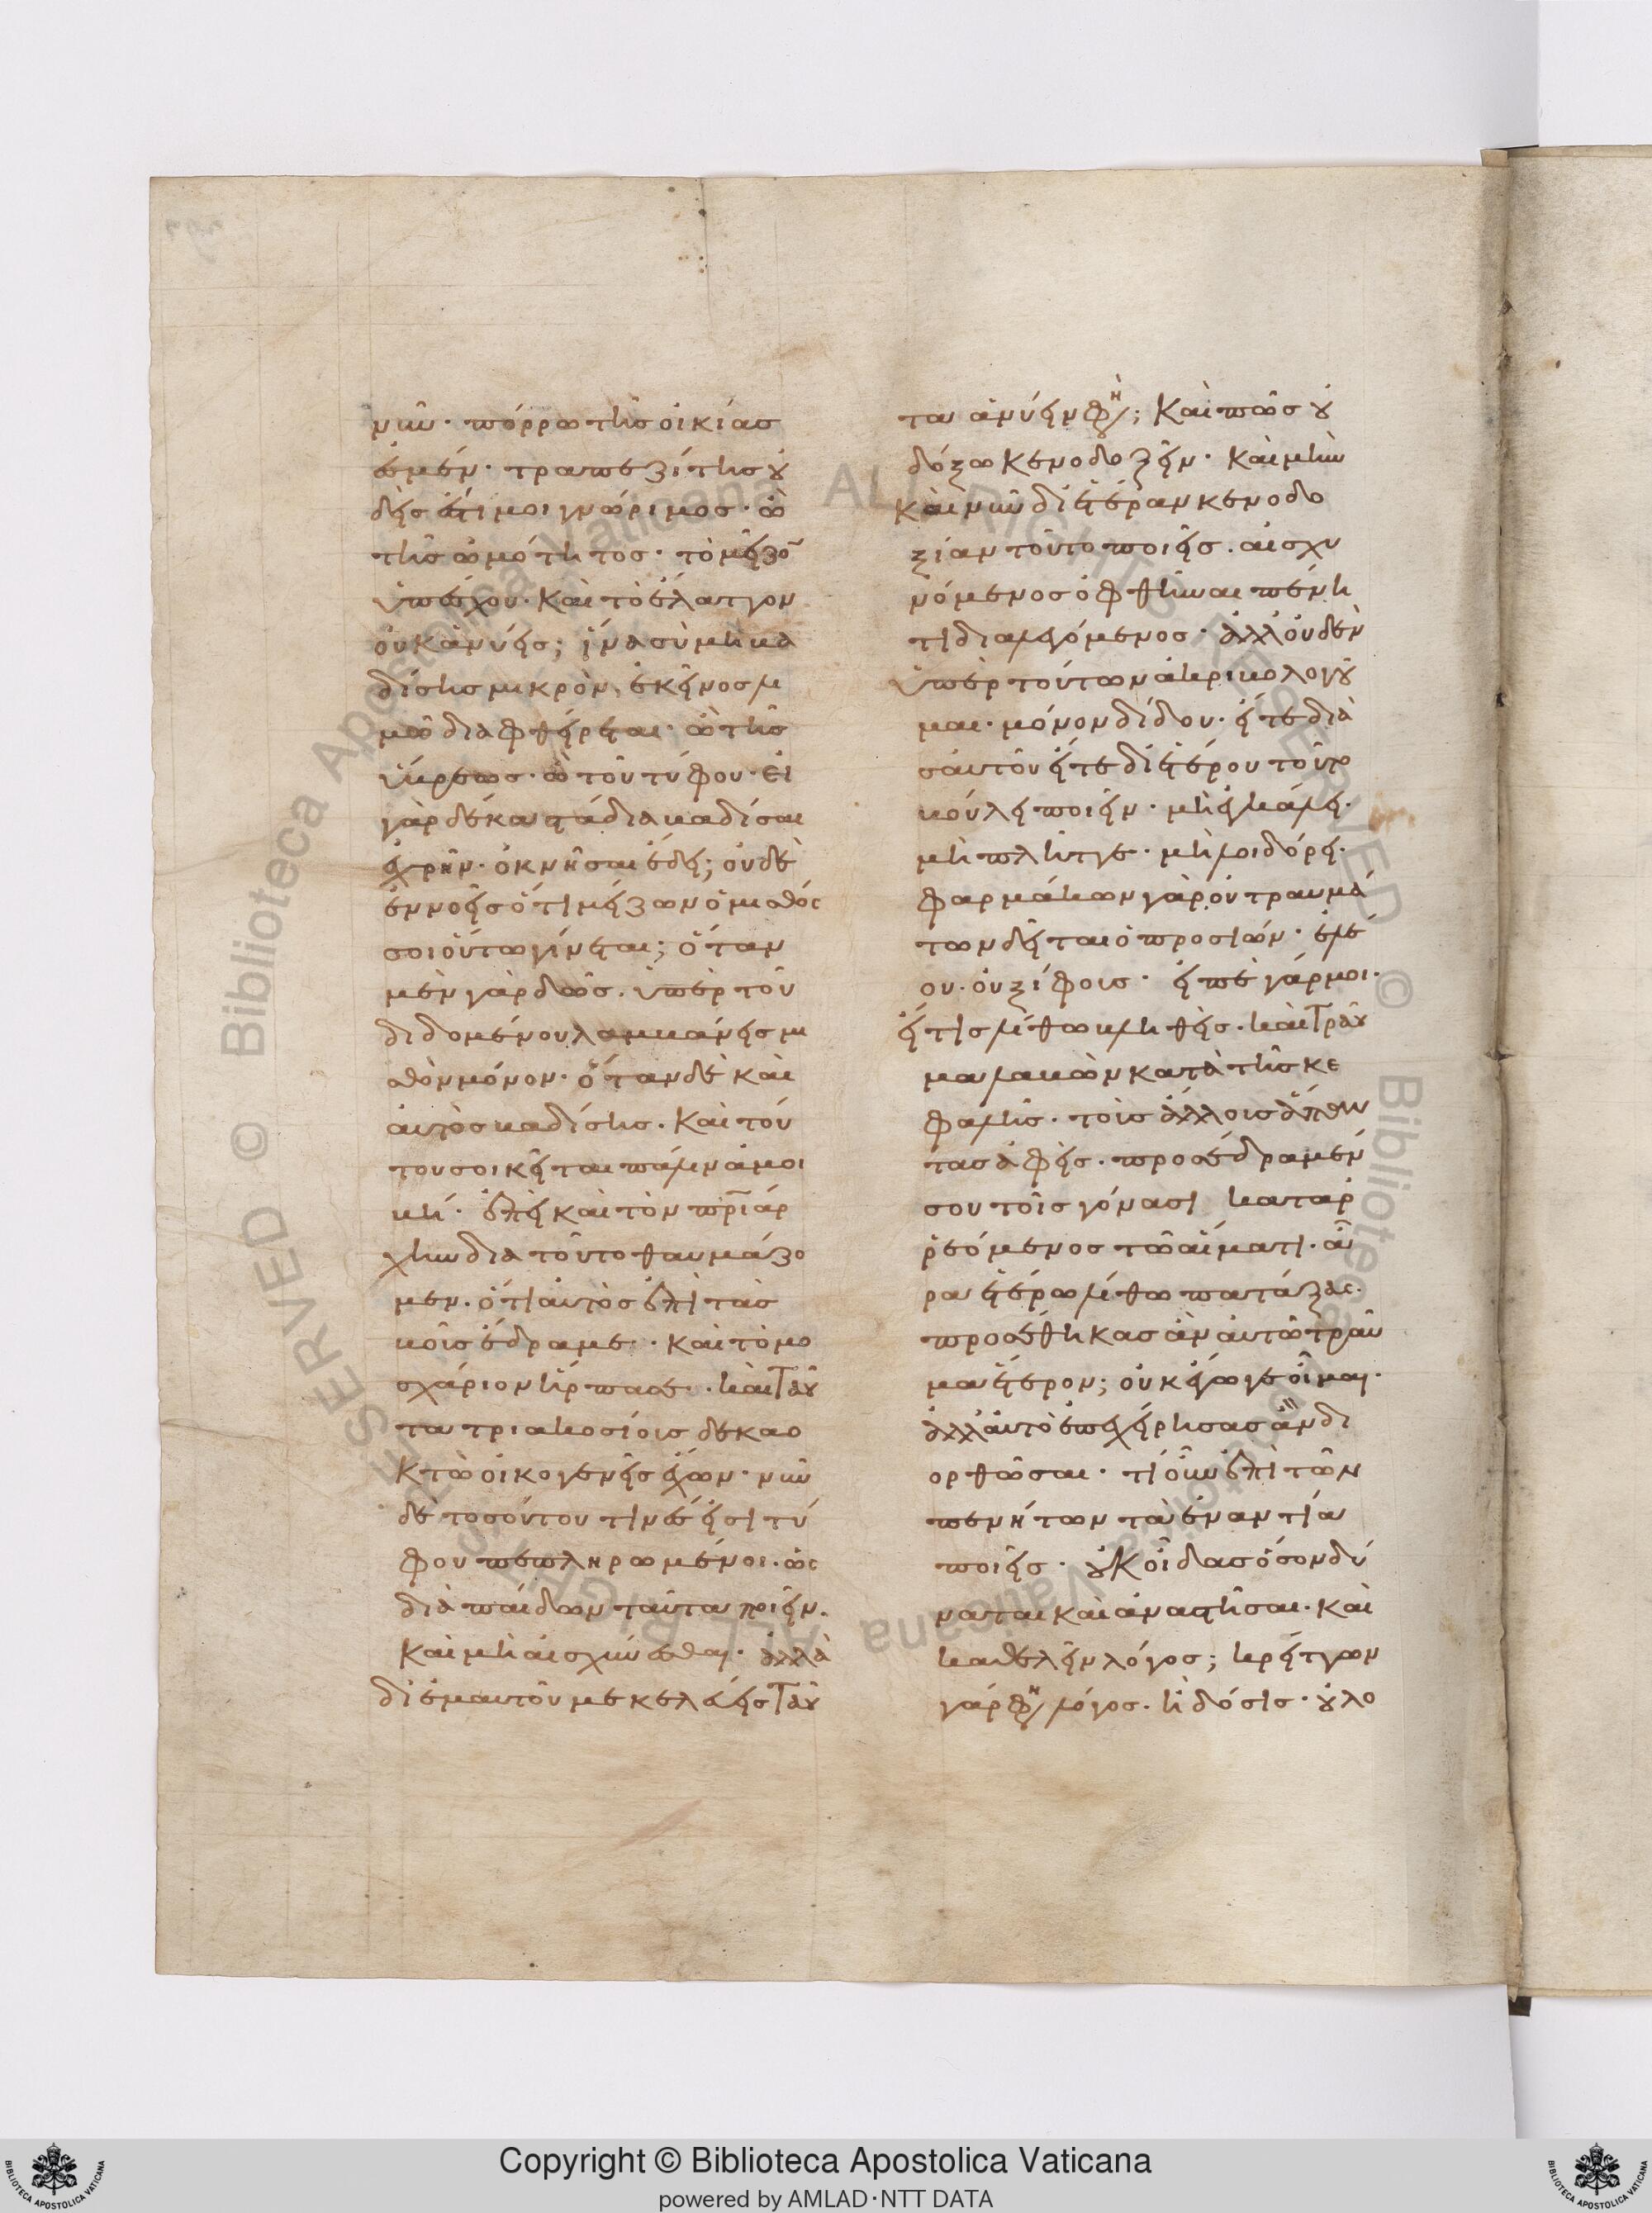 νῦν· πόρρω τῆς οἰκίας
ἐσμέν· τραπεζίτης οὐ
δείς ἐστί μοι γνώριμος· ὢ
τῆς ὠμότητος· τὸ μεῖζο̅
ὑπέσχου· καὶ τὸ ἔλαττον
οὐκ ἀνύεις; ἵνα σὺ μὴ βα
δίσῃς μικρὸν, ἐκεῖνος λι
μῷ διαφθείρεται· ὢ τῆς
ὕβρεως· ὢ τοῦ τύφου· εἰ
γὰρ δέκα στάδια βαδίσαι
ἐχρῆν· ὀκνῆσαι ἔδει; οὐδὲ
ἐννοεῖς ὅτι μείζων ὁ μισθός
σοι οὕτω γίνεται; ὅταν
μὲν γὰρ δῷς. ὑπὲρ τοῦ
διδομένου λαμβάνεις μι
σθὸν μόνον· ὅταν δὲ καὶ
αὐτὸς βαδίσῃς. καὶ τού
του σοι κεῖται πάλιν ἀμοι
βή· ἐπεὶ καὶ τὸν πρ̅ιάρ
χην διὰ τοῦτο θαυμάζο
μεν. ὅτι αὐτὸς ἐπὶ τὰς
βοῦς ἔδραμε· καὶ τὸ μο
σχάριον ἥρπασε· καὶ ταῦ
τα τριακοσίους δεκαο
κτὼ οἰκογενεῖς ἔχων· νῦν
δὲ τοσούτου τινές εἰσι τύ
φου πεπληρωμένοι. ὡς
διὰ παίδων ταῦτα ποιεῖν.
καὶ μὴ αἰσχύνεσθαι· ἀλλὰ
δι᾽ ἐμαυτοῦ με κελεύεις ταῦ
τα ἀνύειν φη(σὶ); καὶ πῶς οὐ
δόξω κενοδοξεῖν· καὶ μὴν
καὶ νῦν δι᾽ ἑτέραν κενοδο
ξίαν τοῦτο ποιεῖς. αἰσχυ
νόμενος ὀφθῆναι πένη
τι διαλεγόμενος· ἀλλ᾽ οὐδὲν
ὑπὲρ τούτων ἀκριβολογοῦ
μαι· μόνον δίδου· εἴτε διὰ
σαυτοῦ εἴτε δι᾽ ἑτέρου τοῦτο
βούλει ποιεῖν· μὴ ἐγκάλει·
μὴ πλῆττε· μὴ λοιδόρει·
φαρμάκων γὰρ οὐ τραυμά
των δεῖται ὁ προσιών· ἐλέ
ου· οὐ ξίφους· εἰπὲ γάρ μοι.
εἴ τις λίθῳ βληθεὶς. καὶ τραῦ
μα λαβὼν κατὰ τῆς κε
φαλῆς. τοὺς ἄλλους ἅπαν
τας ἀφεὶς. προσέδραμέν
σου τοῖς γόνασι καταρ
ρεόμενος τῷ αἵματι. ἆ
ρα ἑτέρῳ λίθῳ πατάξας.
προσέθηκας ἂν αὐτῷ τραῦ
μα ἕτερον; οὐκ ἔγωγε οἶμαι·
ἀλλ᾽ αὐτὸ ἐπεχείρησας ἂν δι
ορθῶσαι· τί οὖν ἐπὶ τῶν
πενήτων τὰ ἐναντία
ποιεῖς· οὐκ οἶδας ὅσον δύ
ναται καὶ ἀναστῆσαι· καὶ
καθελεῖν λόγος; κρείττων
γάρ φη(σι) λόγος. ἢ δόσις· οὐ λο